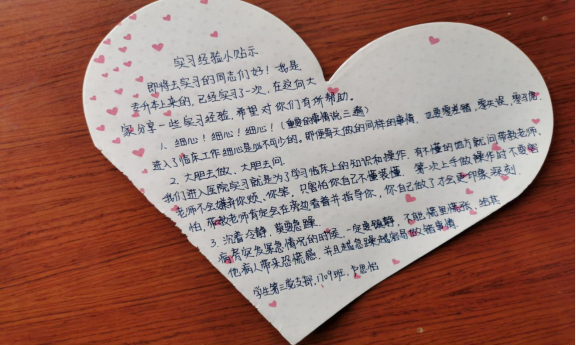 实习经验小贴示
即将去实习的同志们好！我是
专升本上来的，已经实习了一次，在这向大
家分享一些实习经验，希望对你们有所帮助。
1. 细心！细心！细心！（重要的事情说三遍）
进入了临床工作细心是必不可少的。即便每天做的同样的事情，也要零差错，零失误，零
2. 大胆去做，大胆去问.
我们进入医院实习就是为了学习临床上的知识和操作. 有不懂的地方就问带教老师，
老师不会嫌弃你烦、你笨，只害怕你自己不懂装懂. 第一次上手做操作时不要害
怕，带教老师肯定会在旁边看着并指导你，你自己做了才会更印象深刻.
3. 沉着冷静，莫急躁.
病房突发紧急情况的时候，一定要镇静，不能慌里慌张，给其
他病人带来恐慌感，并且越急躁越容易做错事情.
学生第三党支部，1709班，